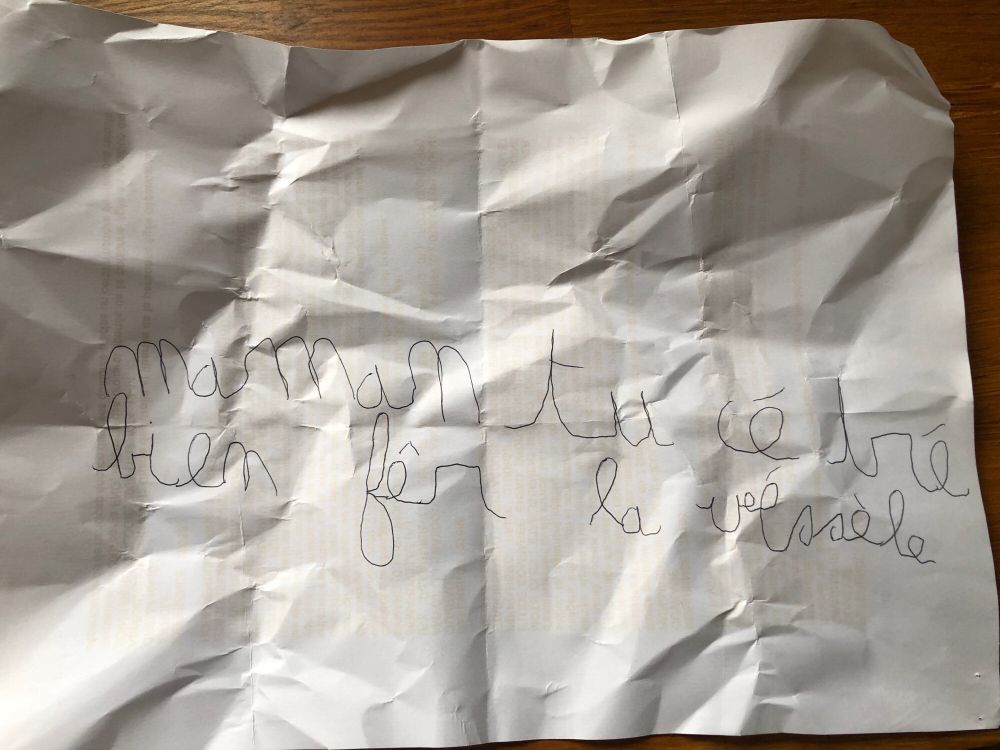 maman tu cé tré
bien fêr la véssèle